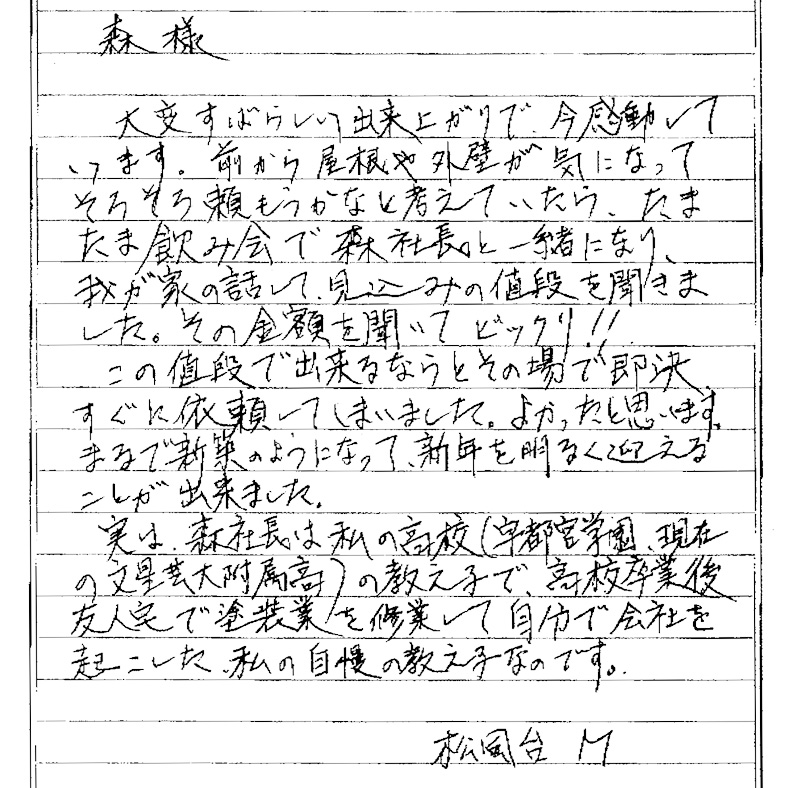 森 様
大変すばらしい出来上がりで、今感動して
います。前から屋根や外壁が気になって
そろそろ頼もうかなと考えていたら、たま
たま飲み会で森社長と一緒になり、
我が家の話して、見込みの値段を聞きま
した。その金額を聞いてビックリ!!
この値段で出来るならとその場で即決、
すぐに依頼してしまいました。よかったと思います。
まるで新築のようになって、新年を明るく迎える
ことが出来ました。
実は、森社長は私の高校(宇都宮学園、現在
の文星芸大附属高)の教え子で、高校卒業後
友人宅で塗装業を修業して自分で会社を
起こした、私の自慢の教え子なのです。
松岡台 M